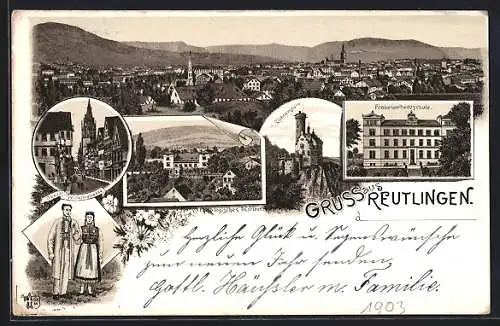 Frauenarbeitschule.
Lichtenstein
GRUSS aus REUTLINGEN.
d
Herzliche Glück u. Segenswünsche
zum neuen Jahr senden
Gottl. Häussler m. Familie.
1903